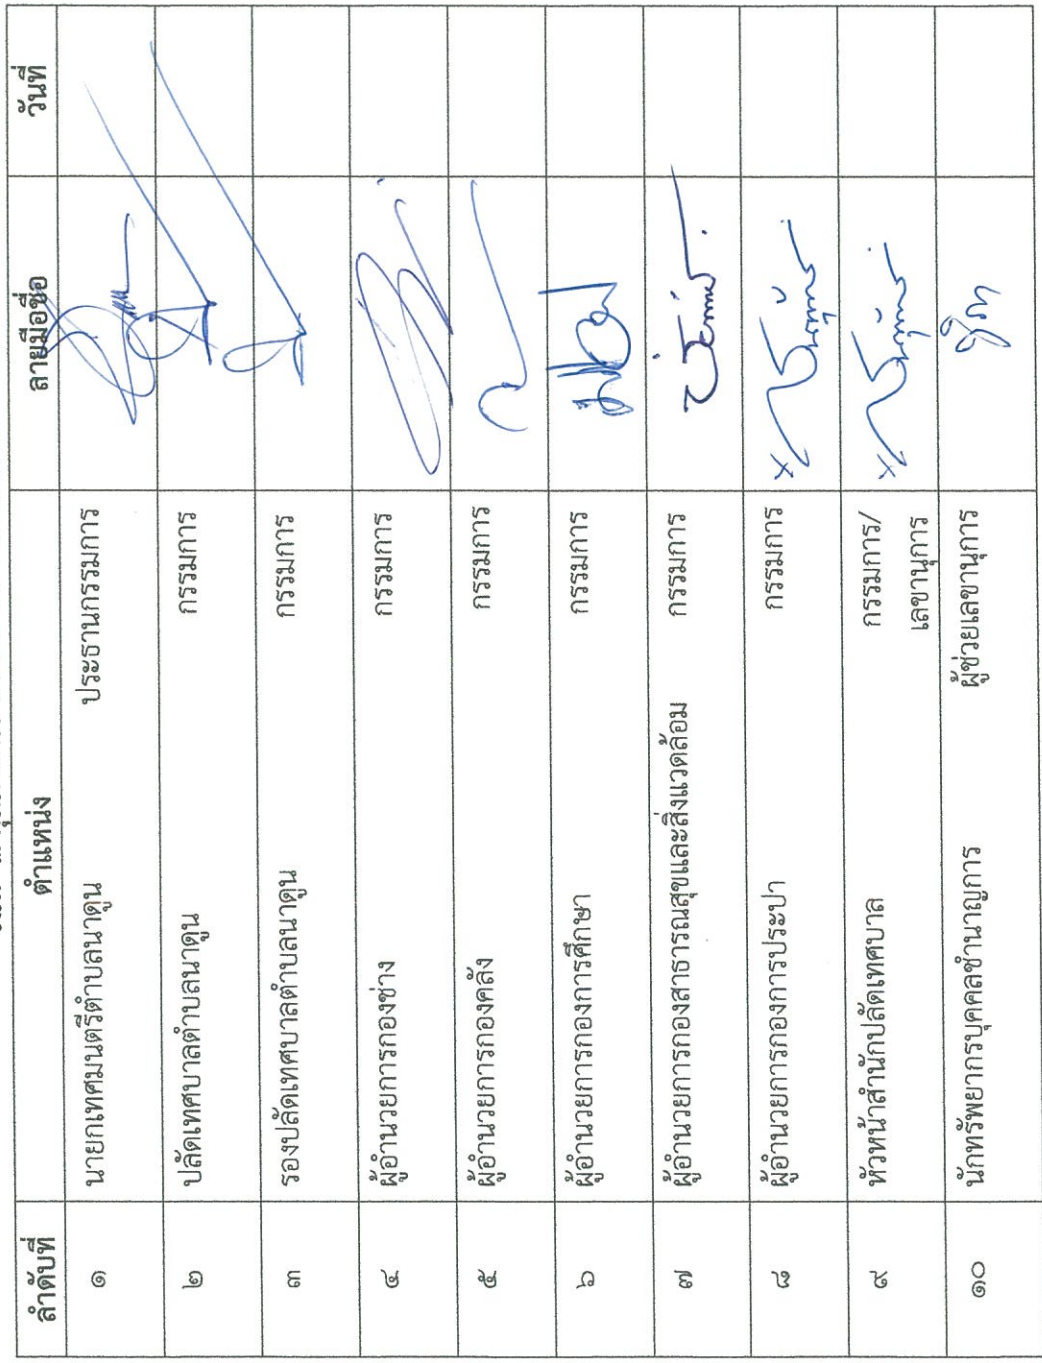 ลำดับที่ ตำแหน่ง ลายมือชื่อ วันที่
๑ นายกเทศมนตรีตำบลนาดูน ประธานกรรมการ
๒ ปลัดเทศบาลตำบลนาดูน กรรมการ
๓ รองปลัดเทศบาลตำบลนาดูน กรรมการ
๔ ผู้อำนวยการกองช่าง กรรมการ
๕ ผู้อำนวยการกองคลัง กรรมการ
๖ ผู้อำนวยการกองการศึกษา กรรมการ
๗ ผู้อำนวยการกองสาธารณสุขและสิ่งแวดล้อม กรรมการ
๘ ผู้อำนวยการกองการประปา กรรมการ
๙ หัวหน้าสำนักปลัดเทศบาล กรรมการ/
เลขานุการ
๑๐ นักทรัพยากรบุคคลชำนาญการ ผู้ช่วยเลขานุการ